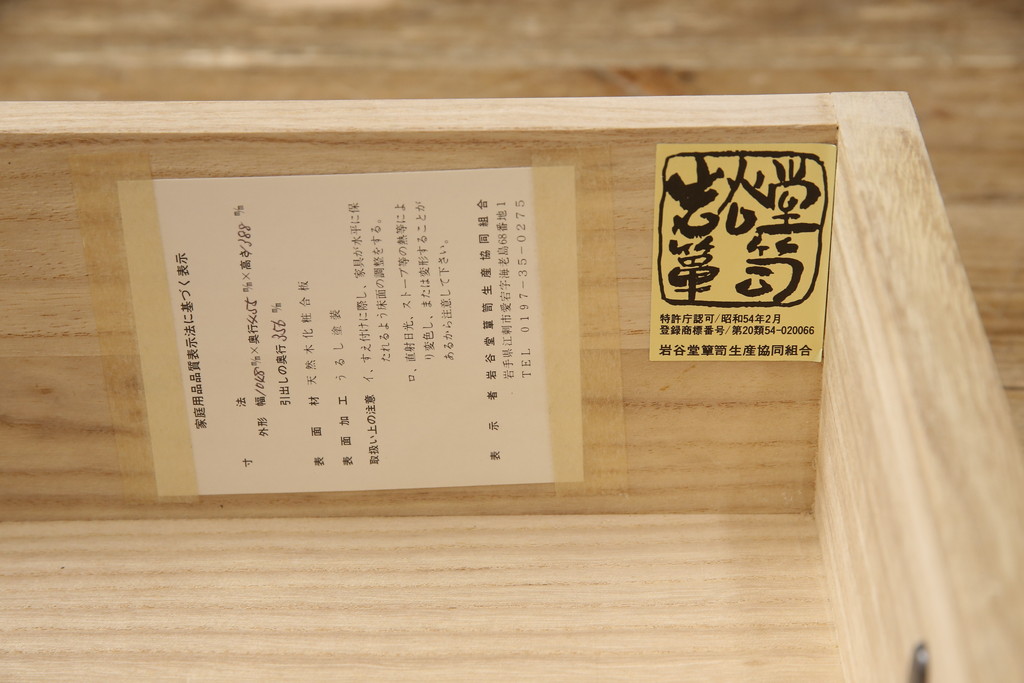 家庭用品品質表示法に基づく表示
寸法
外形 幅1068㎜×奥行455㎜×高さ388㎜
引出しの奥行356㎜
表面材 天然木化粧合板
表面加工 うるし塗装
取扱い上の注意 イ、すえ付けに際し、家具が水平に保
たれるよう床面の調整をする。
ロ、直射日光、ストーブ等の熱等によ
り変色し、または変形することが
あるから注意して下さい。
表示者 岩谷堂簞笥生産協同組合
岩手県江刺市愛宕字海老島68番地1
TEL 0197-35-0275
岩谷堂
簞笥
特許庁認可/昭和54年2月
登録商標番号/第20類54-020066
岩谷堂簞笥生産協同組合